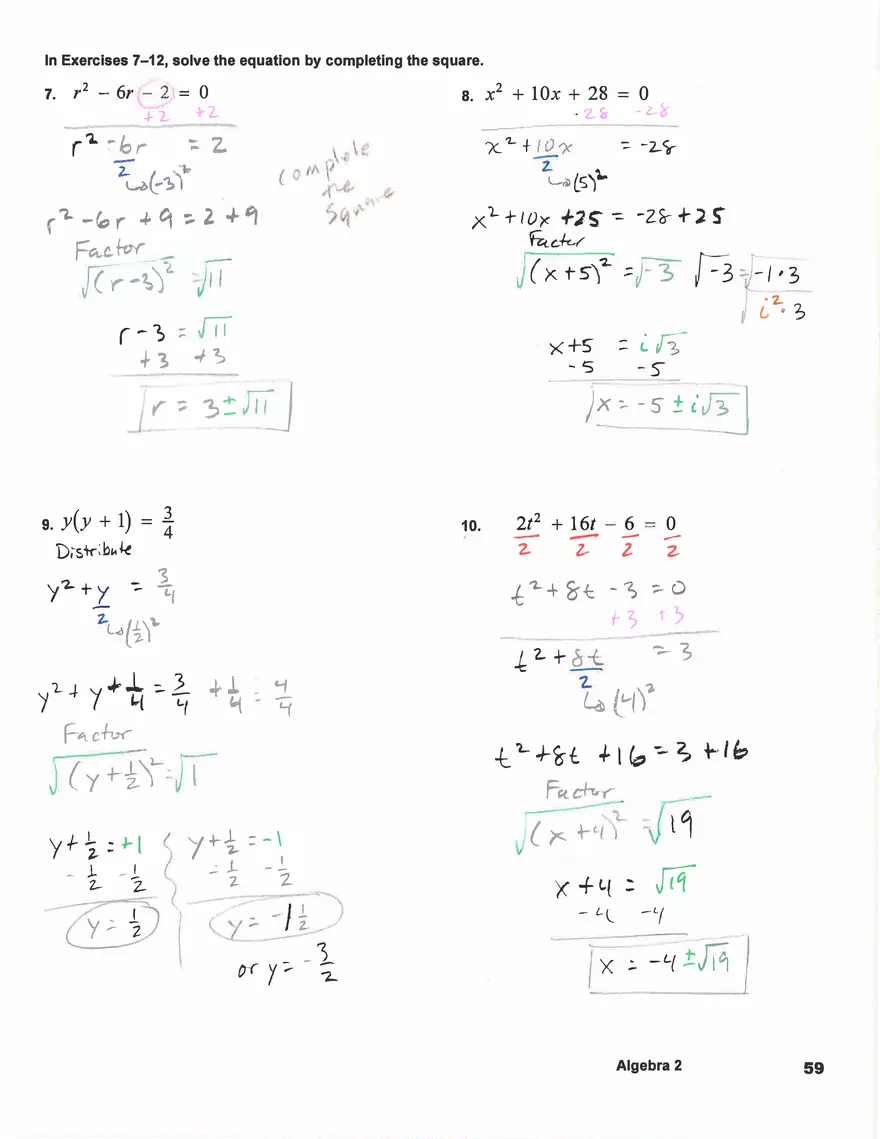 In Exercises 7–12, solve the equation by completing the square.
7. r² − 6r − 2 = 0
+2 +2
r² - 6r = 2
2
↳(-3)²
complete
the
square
r² - 6r + 9 = 2 + 9
Factor
√(r-3)² = √11
r - 3 = √11
+3 +3
r = 3 ± √11
8. x² + 10x + 28 = 0
-28 -28
x² + 10x = -28
2
↳(5)²
x² + 10x + 25 = -28 + 25
Factor
√(x+5)² = √-3 √-3 = √-1·3
√i²·3
x+5 = i√3
-5 -5
x = -5 ± i√3
9. y(y + 1) = 3/4
Distribute
y² + y = 3/4
2
↳(1/2)²
y² + y + 1/4 = 3/4 + 1/4 = 4/4
Factor
√(y+1/2)² = √1
y + 1/2 = +1 y + 1/2 = -1
- 1/2 - 1/2 - 1/2 - 1/2
y = 1/2 y = -1 1/2
or y = - 3/2
10. 2t² + 16t − 6 = 0
2 2 2 2
t² + 8t - 3 = 0
+3 +3
t² + 8t = 3
2
↳(4)²
t² + 8t + 16 = 3 + 16
Factor
√(x+4)² = √19
x + 4 = √19
-4 -4
x = -4 ± √19
Algebra 2 59